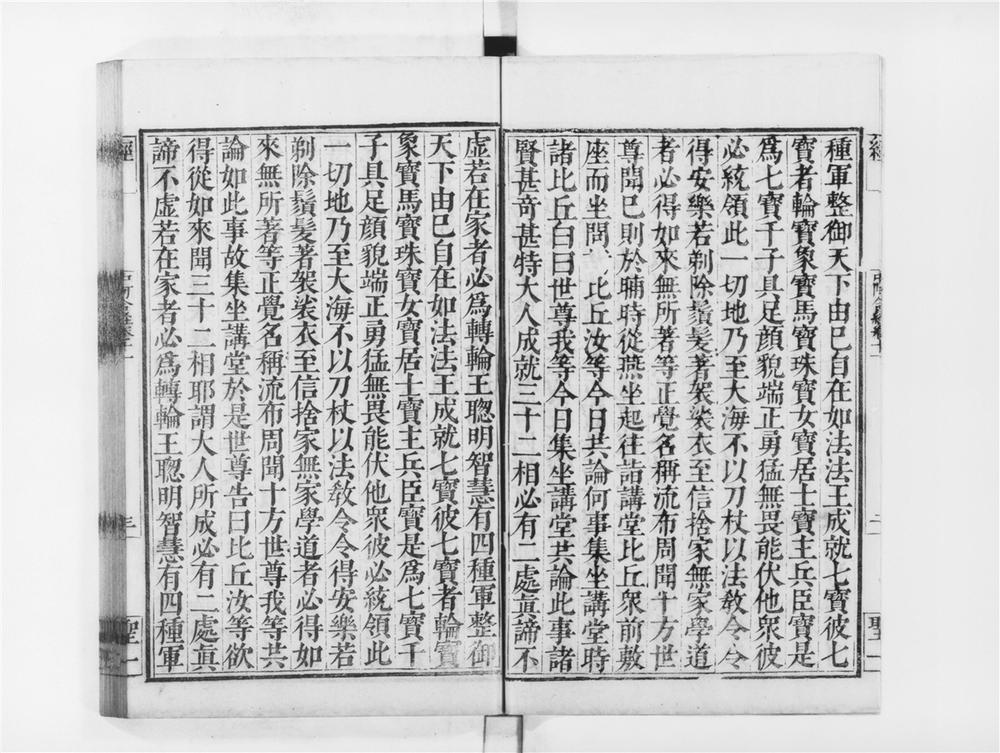 種軍整御天下由已自在如法法王成就七寶彼七
寶者輪寶象寶馬寶珠寶女寶居士寶主兵臣寶是
爲七寶千子具足顔貌端正勇猛無畏能伏他眾彼
必統領此一切地乃至大海不以刀杖以法敎令令
得安樂若剃除鬚髮著袈裟衣至信捨家無家學道
者必得如來無所著等正覺名稱流布周聞十方世
尊聞已則於晡時從燕坐起往詣講堂比丘眾前敷
座而坐問比丘汝等今日共論何事集坐講堂時
諸比丘白曰世尊我等今日集坐講堂共論此事諸
賢甚奇甚特大人成就三十二相必有二處眞諦不
虛若在家者必爲轉輪王聰明智慧有四種軍整御
天下由已自在如法法王成就七寶彼七寶者輪寶
象寶馬寶珠寶女寶居士寶主兵臣寶是爲七寶千
子具足顔貌端正勇猛無畏能伏他眾彼必統領此
一切地乃至大海不以刀杖以法敎令令得安樂若
剃除鬚髮著袈裟衣至信捨家無家學道者必得如
來無所著等正覺名稱流布周聞十方世尊我等共
論如此事故集坐講堂於是世尊告曰比丘汝等欲
得從如來聞三十二相耶謂大人所成必有二處眞
諦不虛若在家者必爲轉輪王聰明智慧有四種軍
經
三
聖一